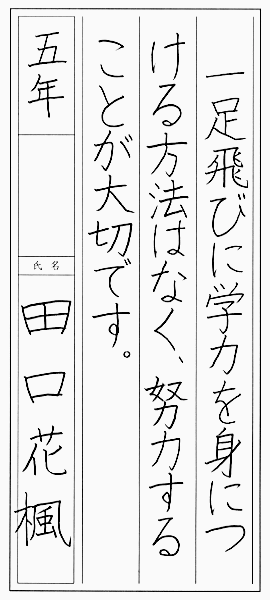 一足飛びに学力を身につ
ける方法はなく、努力する
ことが大切です。
五年
氏名
田口花楓